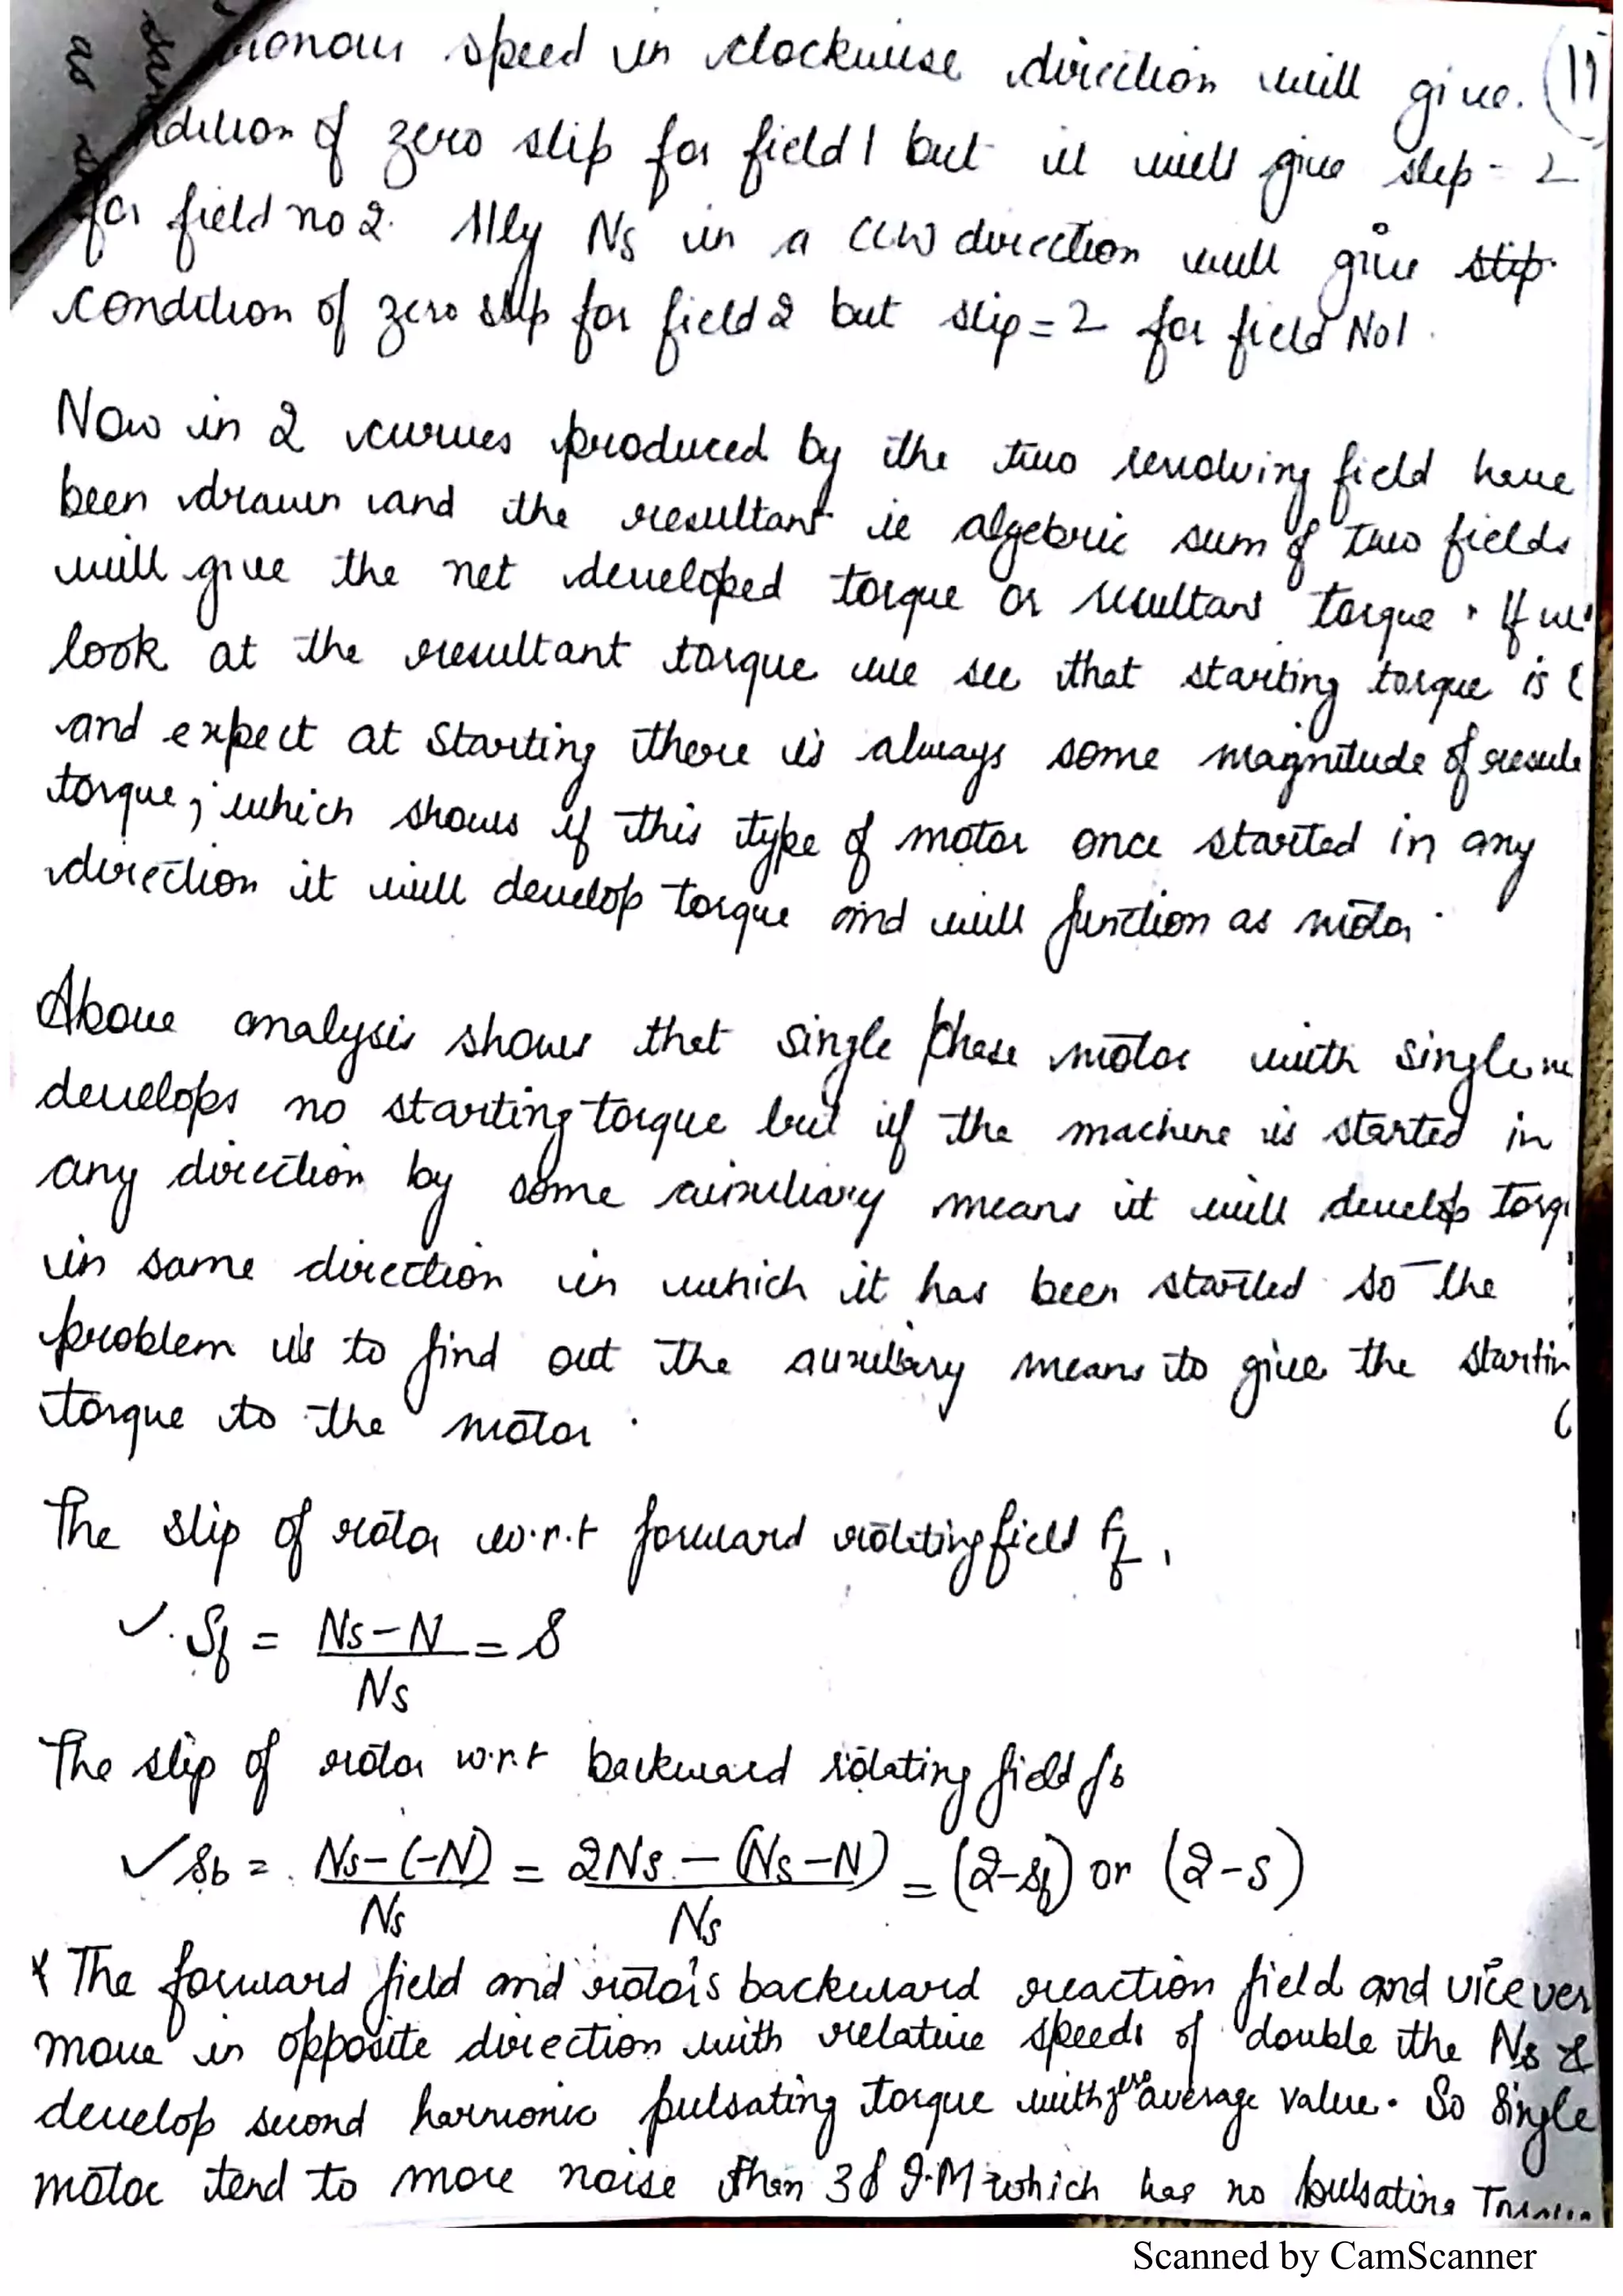 speed in clockwise direction will give. (11)
of zero slip for field 1 but it will give slip - 2
for field no 2. Illy Ns in a CCW direction will give slip
condition of zero slip for field 2 but slip = 2 for field No 1.
Now in 2 curves produced by the two revolving field have
been drawn and the resultant ie algebric sum of two fields
will give the net developed torque or resultant torque. If we
look at the resultant torque we see that starting torque is
and expect at starting there is always some magnitude of
torque; which shows if this type of motor once started in any
direction it will develop torque and will function as motor.
Above analysis shows that single phase motor with single
develops no starting torque but if the machine is started in
any direction by some auxiliary means it will develop torq
in same direction in which it has been started so the
problem is to find out the auxiliary means to give the startin
torque to the motor.
The slip of rotor w.r.t forward rotating field ff,
✓. Sf = Ns-N / Ns = s
The slip of rotor w.r.t backward rotating field fb
✓ Sb = Ns-(-N) / Ns = 2Ns - (Ns-N) / Ns = (2-sf) or (2-s)
* The forward field and rotor's backward reaction field and vice ver
move in opposite direction with relative speeds of double the Ns &
develop second harmonic pulsating torque with zero average value. So Single
motor tend to more noise than 3φ I.M which has no pulsating
Scanned by CamScanner